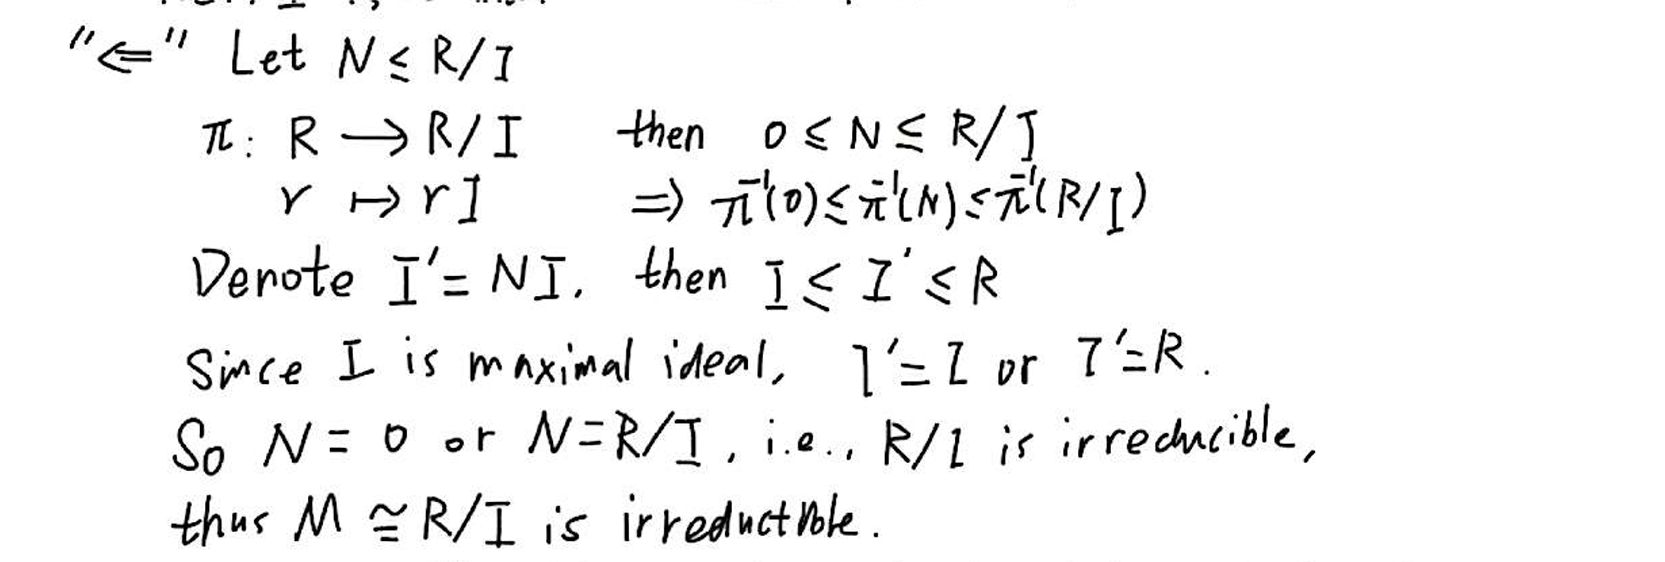 "⇐" Let N ≤ R/I
π: R → R/I then 0 ≤ N ≤ R/I
r ↦ rI ⇒ π⁻¹(0) ≤ π⁻¹(N) ≤ π⁻¹(R/I)
Denote I' = NI, then I ≤ I' ≤ R
Since I is maximal ideal, I' = I or I' = R.
So N = 0 or N = R/I, i.e., R/I is irreducible,
thus M ≅ R/I is irreductible.